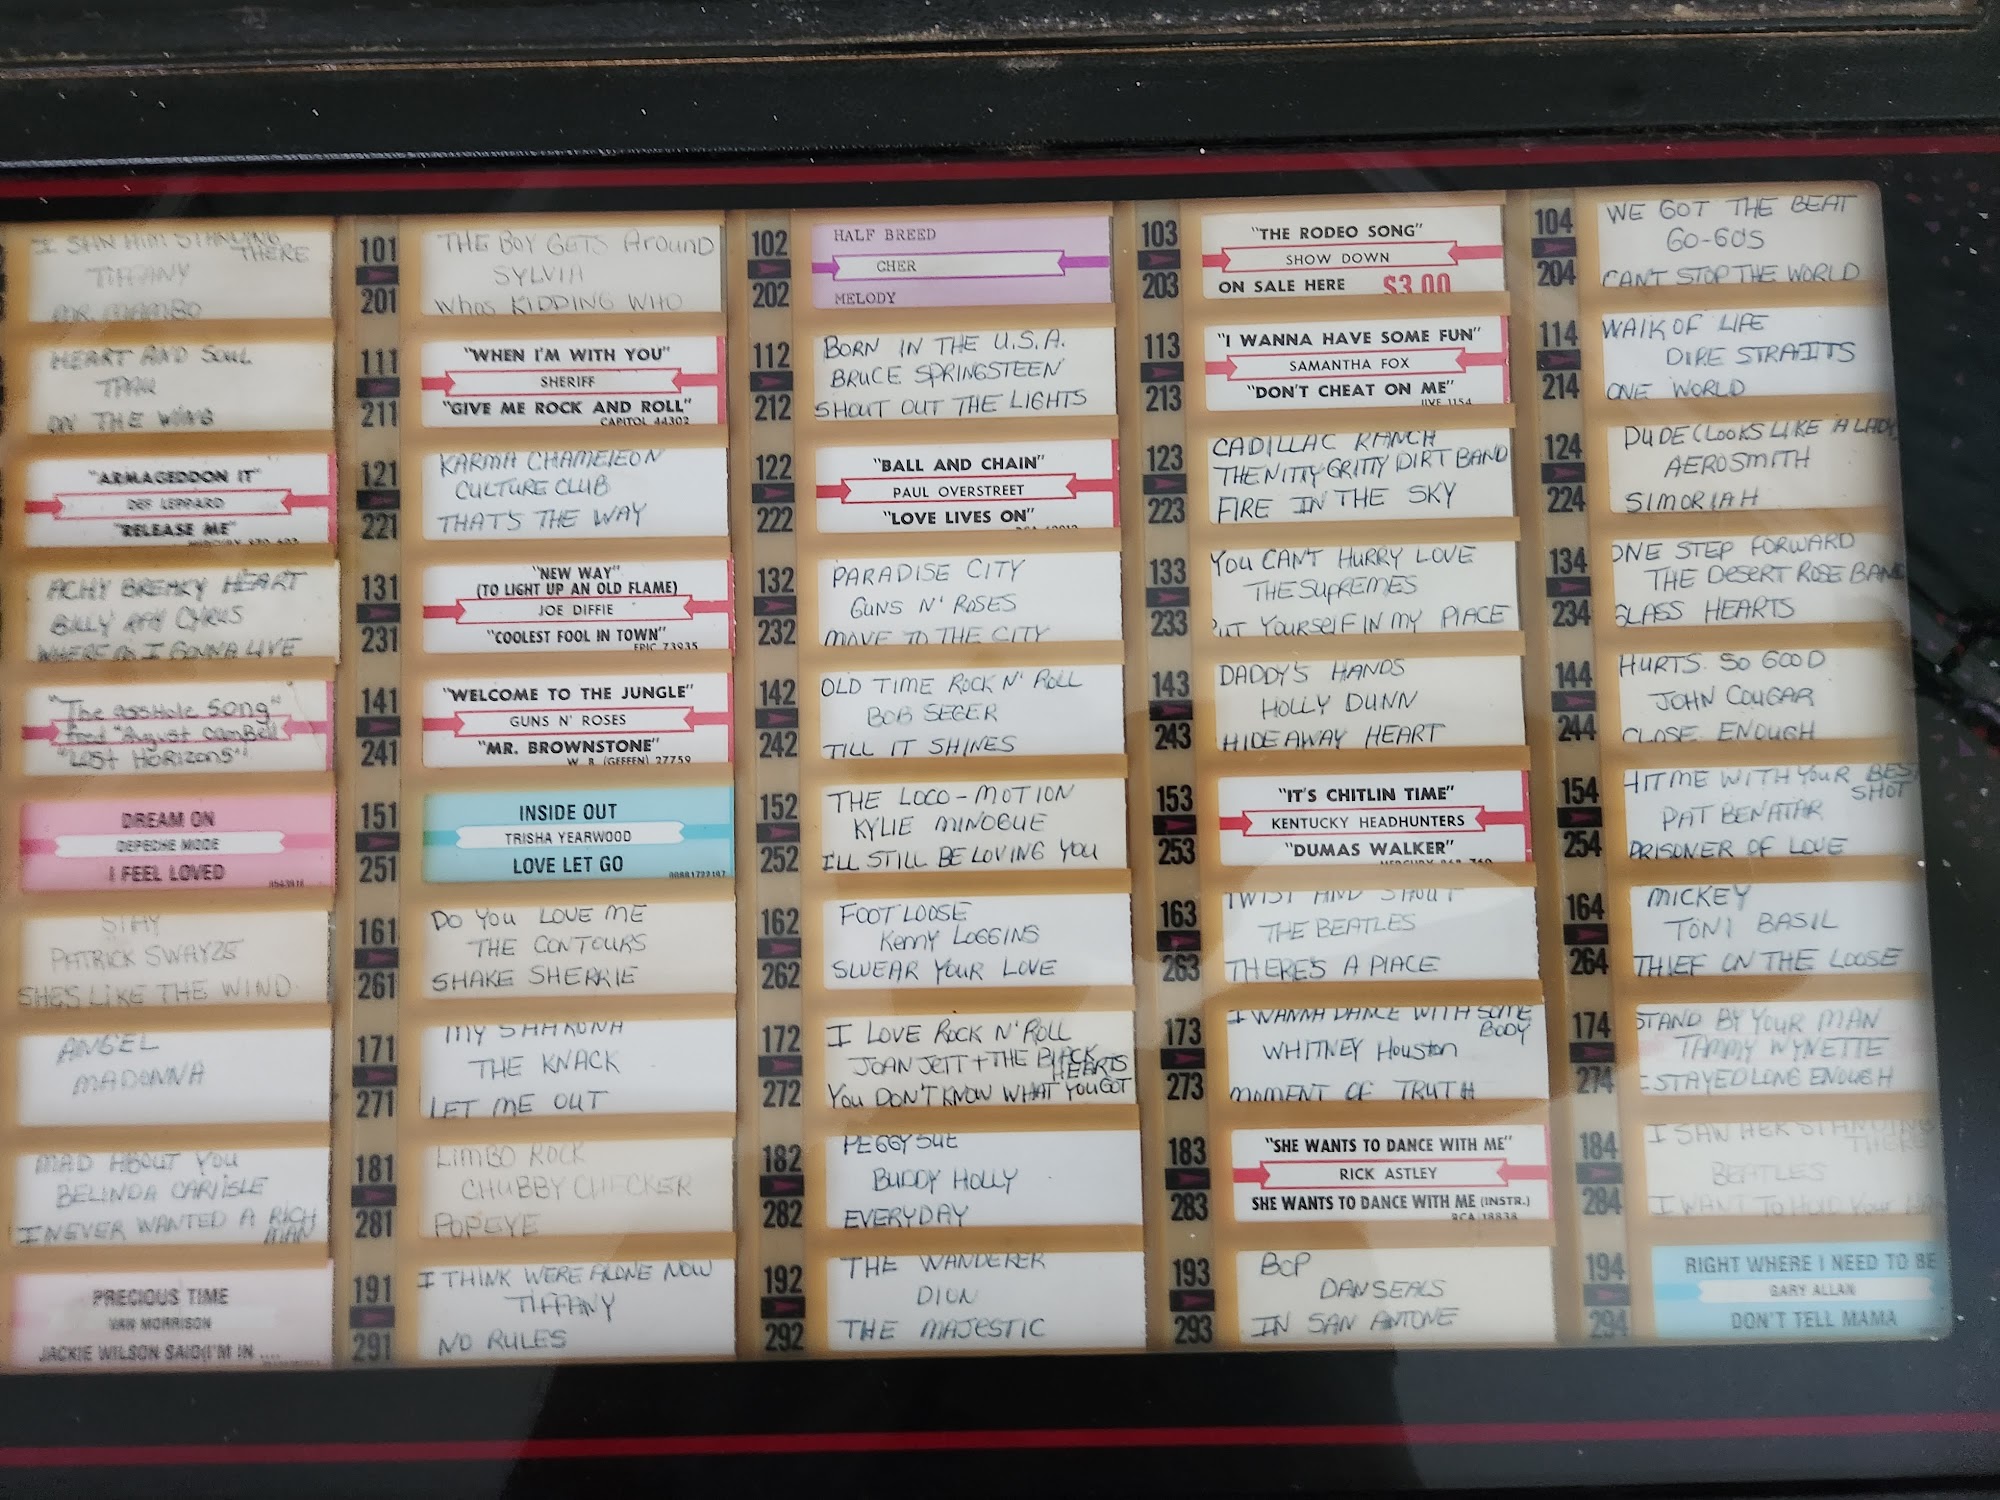 I SAW HIM STANDING
THERE
TIFFANY
MR. MAMBO
HEART AND SOUL
T'PAU
ON THE WING
"ARMAGEDDON IT"
DEF LEPPARD
"RELEASE ME"
ACHY BREAKY HEART
BILLY RAY CYRUS
WHERE AM I GONNA LIVE
"The asshole song"
Food "August CamBell
"Last Horizons"
DREAM ON
DEPECHE MODE
I FEEL LOVED
STAY
PATRICK SWAYZE
SHE'S LIKE THE WIND
ANGEL
MADONNA
MAD ABOUT YOU
BELINDA CARLISLE
I NEVER WANTED A RICH
MAN
PRECIOUS TIME
VAN MORRISON
JACKIE WILSON SAID(I'M IN ....
101
201
THE BOY GETS Around
SYLVIA
Whos KIDDING WHO
111
211
"WHEN I'M WITH YOU"
SHERIFF
"GIVE ME ROCK AND ROLL"
CAPITOL 44302
121
221
KARMA CHAMELEON
CULTURE CLUB
THAT'S THE WAY
131
231
"NEW WAY"
(TO LIGHT UP AN OLD FLAME)
JOE DIFFIE
"COOLEST FOOL IN TOWN"
EPIC 73935
141
241
"WELCOME TO THE JUNGLE"
GUNS N' ROSES
"MR. BROWNSTONE"
W. B. (GEFFEN) 27759
151
251
INSIDE OUT
TRISHA YEARWOOD
LOVE LET GO
161
261
DO YOU LOVE ME
THE CONTOURS
SHAKE SHERRIE
171
271
MY SHARONA
THE KNACK
LET ME OUT
181
281
LIMBO ROCK
CHUBBY CHECKER
POPEYE
191
291
I THINK WERE ALONE NOW
TIFFANY
NO RULES
102
202
HALF BREED
CHER
MELODY
112
212
BORN IN THE U.S.A.
BRUCE SPRINGSTEEN
SHOUT OUT THE LIGHTS
122
222
"BALL AND CHAIN"
PAUL OVERSTREET
"LOVE LIVES ON"
132
232
PARADISE CITY
GUNS N' ROSES
MOVE TO THE CITY
142
242
OLD TIME ROCK N' ROLL
BOB SEGER
TILL IT SHINES
152
252
THE LOCO-MOTION
KYLIE MINOGUE
I'LL STILL BE LOVING YOU
162
262
FOOTLOOSE
KENNY LOGGINS
SWEAR YOUR LOVE
172
272
I LOVE ROCK N' ROLL
JOAN JETT + THE BLACK
HEARTS
YOU DON'T KNOW WHAT YOU GOT
182
282
PEGGY SUE
BUDDY HOLLY
EVERYDAY
192
292
THE WANDERER
DION
THE MAJESTIC
103
203
"THE RODEO SONG"
SHOW DOWN
ON SALE HERE $3.00
113
213
"I WANNA HAVE SOME FUN"
SAMANTHA FOX
"DON'T CHEAT ON ME"
JIVE 1154
123
223
CADILLAC RANCH
THE NITTY GRITTY DIRT BAND
FIRE IN THE SKY
133
233
YOU CAN'T HURRY LOVE
THE SUPREMES
PUT YOURSELF IN MY PLACE
143
243
DADDY'S HANDS
HOLLY DUNN
HIDEAWAY HEART
153
253
"IT'S CHITLIN TIME"
KENTUCKY HEADHUNTERS
"DUMAS WALKER"
163
263
TWIST AND SHOUT
THE BEATLES
THERE'S A PLACE
173
273
I WANNA DANCE WITH SOME
BODY
WHITNEY HOUSTON
MOMENT OF TRUTH
183
283
"SHE WANTS TO DANCE WITH ME"
RICK ASTLEY
SHE WANTS TO DANCE WITH ME (INSTR.)
RCA 18838
193
293
BOP
DAN SEALS
IN SAN ANTONE
104
204
WE GOT THE BEAT
GO-GO'S
CANT STOP THE WORLD
114
214
WALK OF LIFE
DIRE STRAITS
ONE WORLD
124
224
DUDE (LOOKS LIKE A LADY
AEROSMITH
SIMORIAH
134
234
ONE STEP FORWARD
THE DESERT ROSE BAND
GLASS HEARTS
144
244
HURTS SO GOOD
JOHN COUGAR
CLOSE ENOUGH
154
254
HIT ME WITH YOUR BEST
SHOT
PAT BENATAR
PRISONER OF LOVE
164
264
MICKEY
TONI BASIL
THIEF ON THE LOOSE
174
274
STAND BY YOUR MAN
TAMMY WYNETTE
I STAYED LONG ENOUGH
184
284
I SAW HER STANDING
THERE
BEATLES
I WANT TO HOLD YOUR
194
294
RIGHT WHERE I NEED TO BE
GARY ALLAN
DON'T TELL MAMA